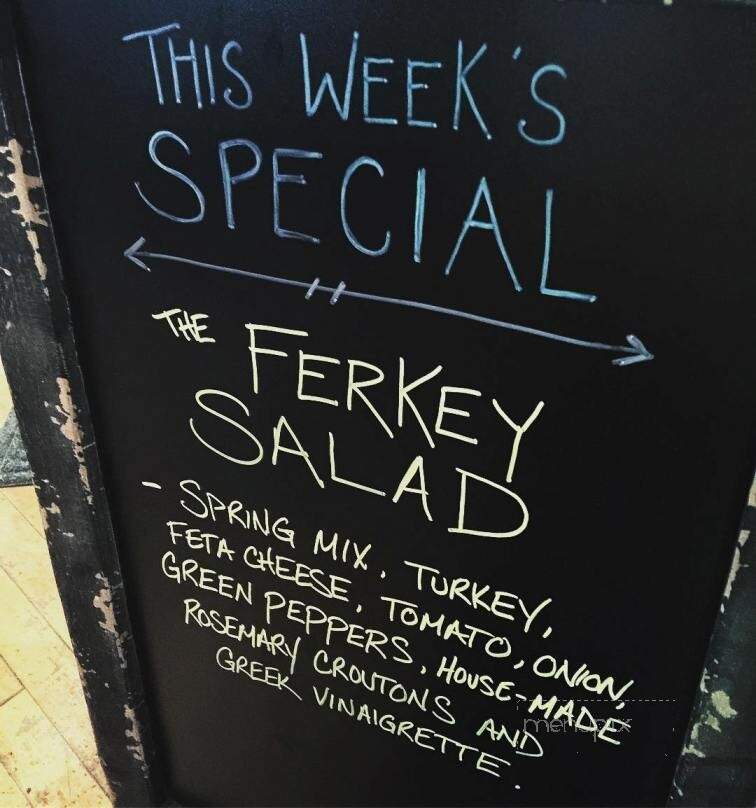 THIS WEEK'S
SPECIAL
THE FERKEY
SALAD
- SPRING MIX, TURKEY,
FETA CHEESE, TOMATO, ONION,
GREEN PEPPERS, HOUSE-MADE
ROSEMARY CROUTONS AND
GREEK VINAIGRETTE.
menupix